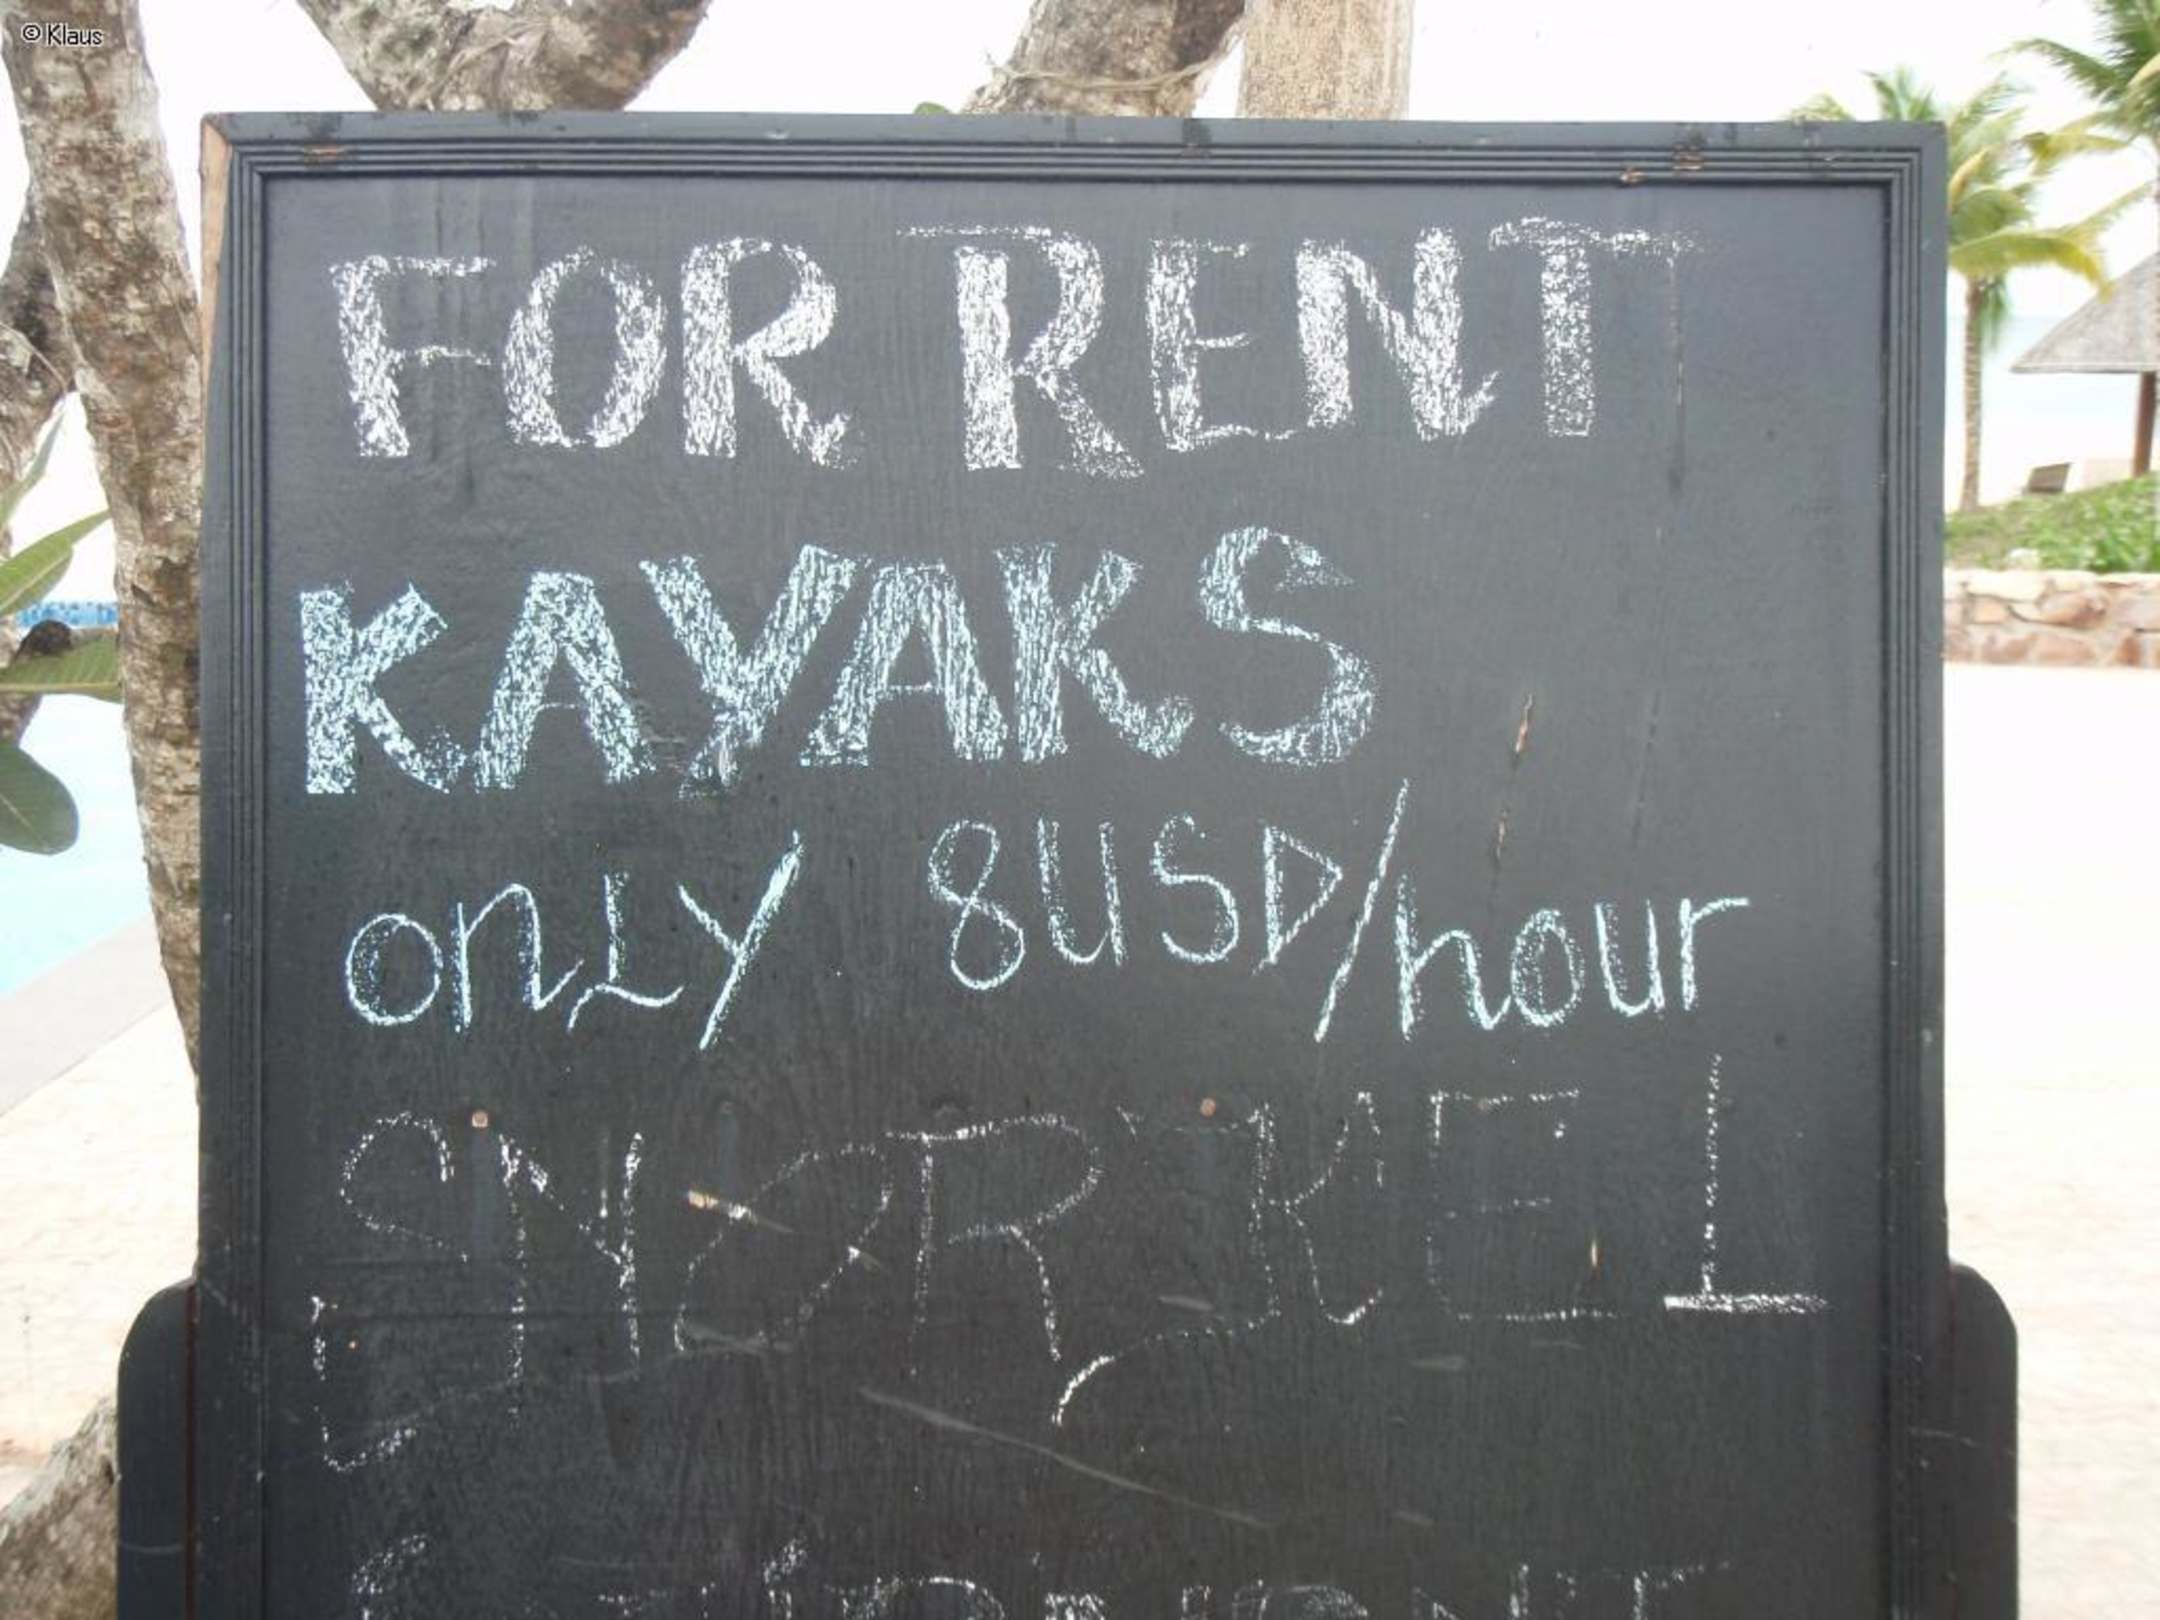 © Klaus
FOR RENT
KAYAKS
onLy 8USD/hour
SNORKEl